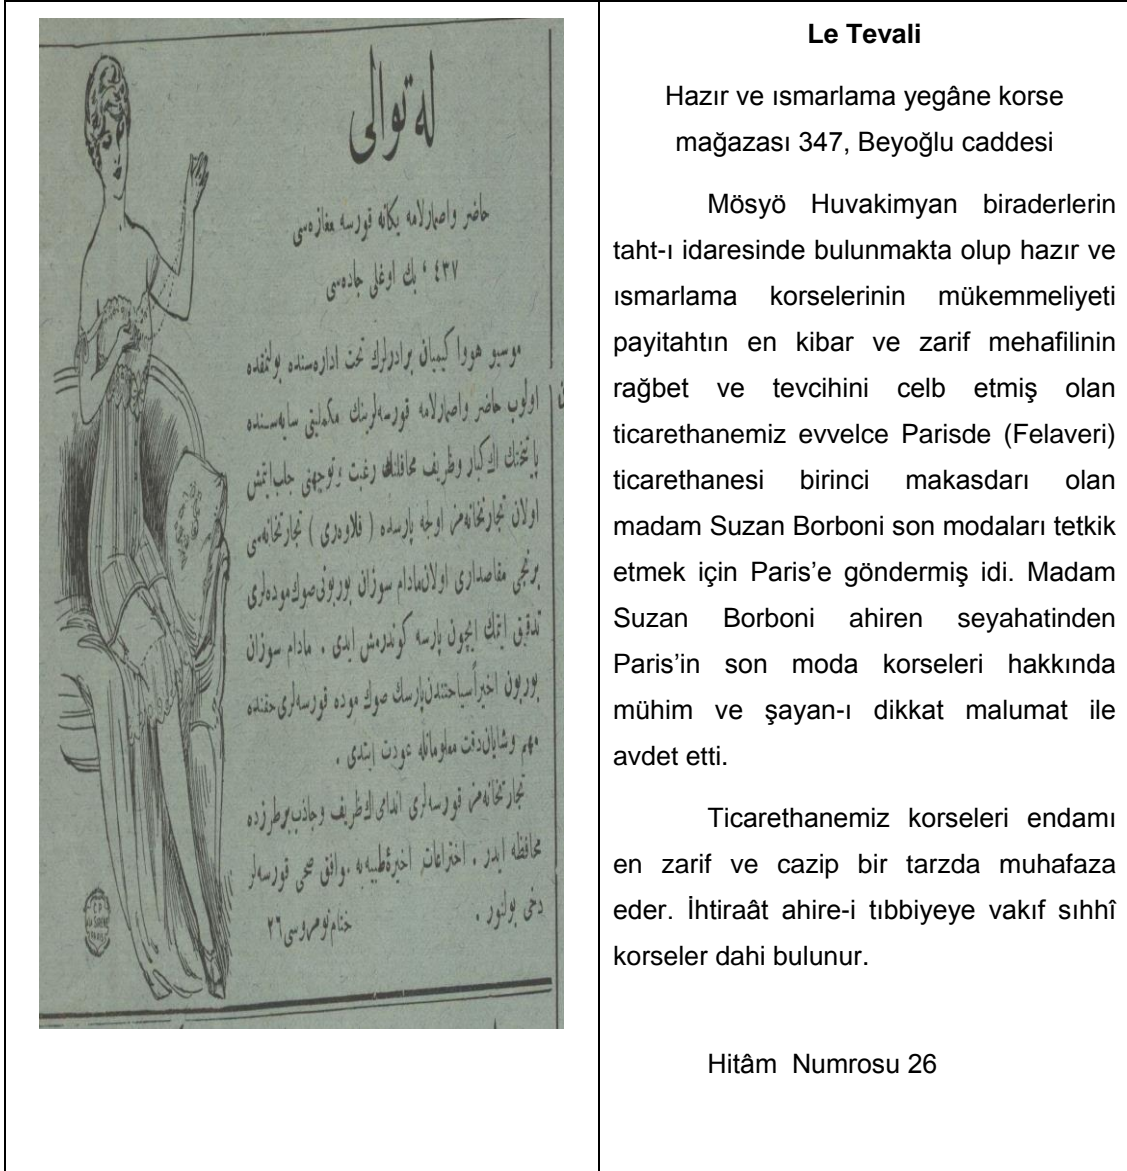 له توالی
حاضر واصمارلامه یكانه قورسه مغازه‌سی
٤٣٧ ، بك اوغلی جاده‌سی
موسیو هووا كیمیان برادرلرك تحت اداره‌سنده بولنمقده
اولوب حاضر واصمارلامه قورسه‌لرینك مكملیتی سایه‌سنده
پایتختك اك كبار وظریف محافلنك رغبت و توجهنی جلب ایتمش
اولان تجارتخانه‌مز اولجه پارسده ( فلاوه‌ری ) تجارتخانه‌سی
برنجی مقاصداری اولان مادام سوزان بوربونی صوك موده‌لری
تدقیق ایتمك ایچون پارسه كوندرمش ایدی . مادام سوزان
بوربون اخیراً سیاحتندن پارسك صوك موده قورسه‌لری حقنده
مهم وشایان دقت معلوماتله عودت ایتدی .
تجارتخانه‌مز قورسه‌لری اندامی اك ظریف وجاذب بر طرزده
محافظه ایدر . اختراعات اخیرۀ طبیه‌یه موافق صحی قورسه‌لر
دخی بولنور .
ختام نومروسی ٢٦
Le Tevali
Hazır ve ısmarlama yegâne korse
mağazası 347, Beyoğlu caddesi
Mösyö Huvakimyan biraderlerin
taht-ı idaresinde bulunmakta olup hazır ve
ısmarlama korselerinin mükemmeliyeti
payitahtın en kibar ve zarif mehafilinin
rağbet ve tevcihini celb etmiş olan
ticarethanemiz evvelce Parisde (Felaveri)
ticarethanesi birinci makasdarı olan
madam Suzan Borboni son modaları tetkik
etmek için Paris’e göndermiş idi. Madam
Suzan Borboni ahiren seyahatinden
Paris’in son moda korseleri hakkında
mühim ve şayan-ı dikkat malumat ile
avdet etti.
Ticarethanemiz korseleri endamı
en zarif ve cazip bir tarzda muhafaza
eder. İhtiraât ahire-i tıbbiyeye vakıf sıhhî
korseler dahi bulunur.
Hitâm Numrosu 26